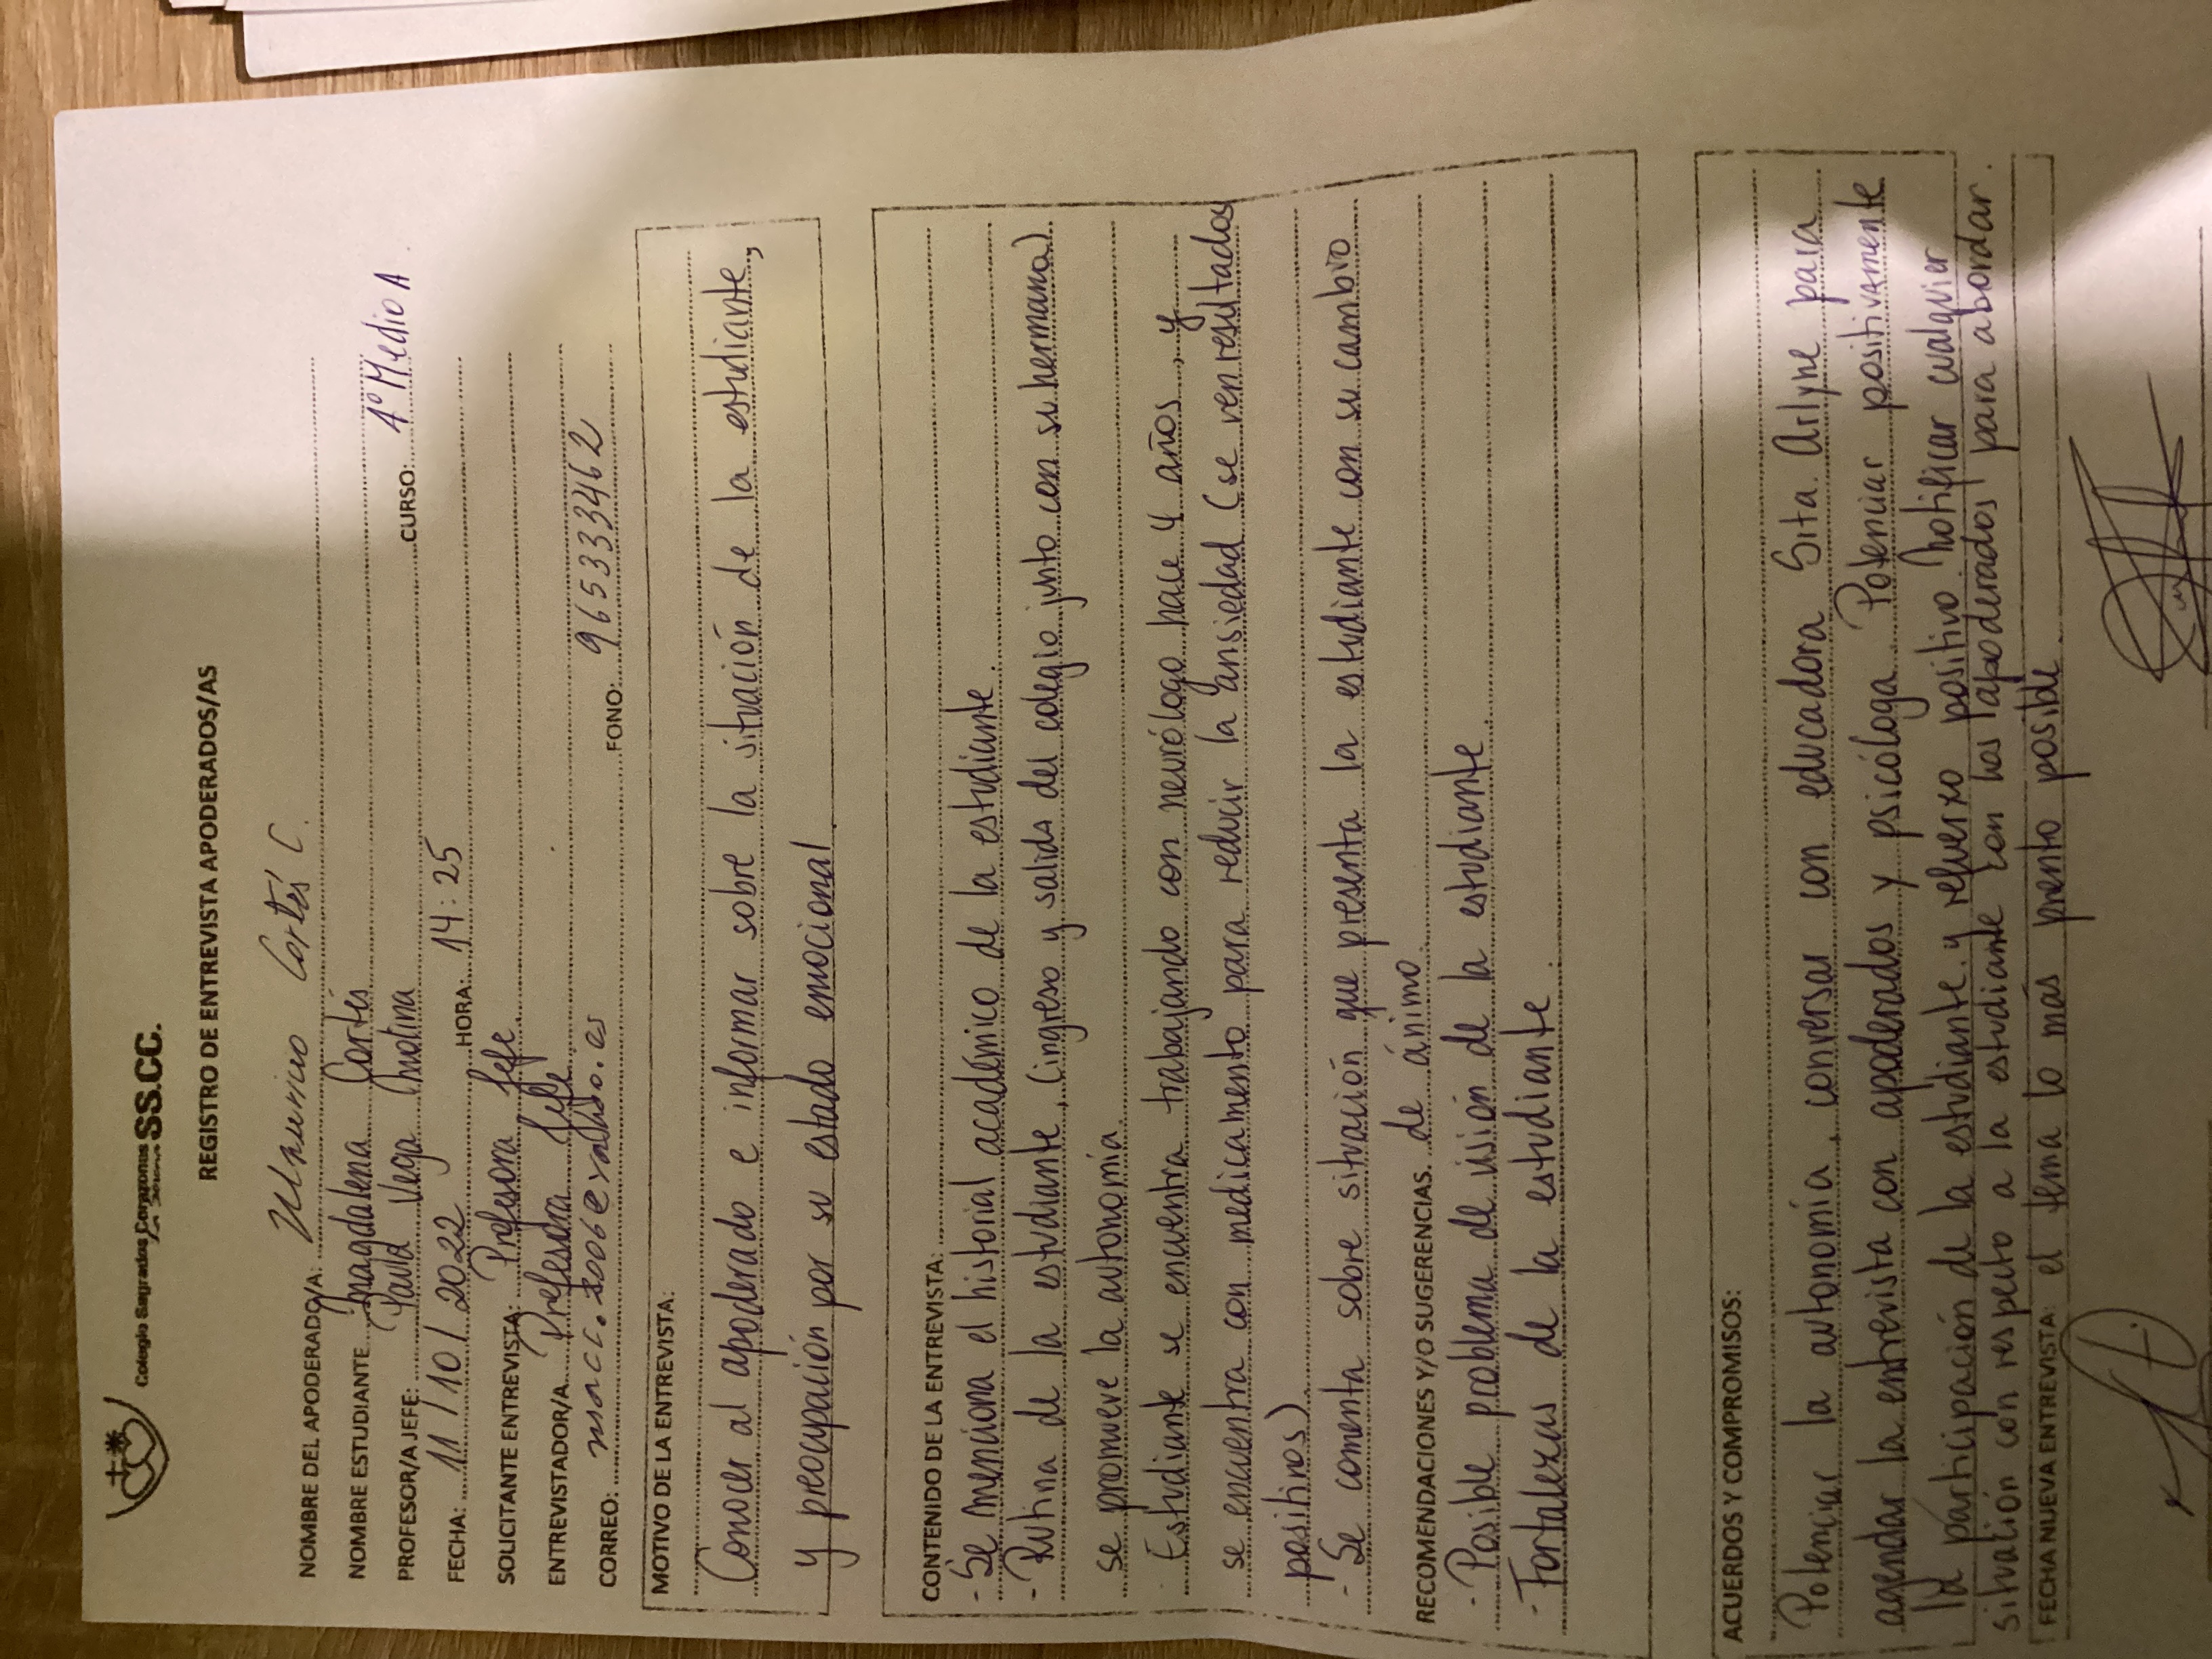 Colegio Sagrados Corazones SS.CC.
REGISTRO DE ENTREVISTA APODERADOS/AS
NOMBRE DEL APODERADO/A: Mauricio Cortés C.
NOMBRE ESTUDIANTE Magdalena Cortés CURSO: 4° Medio A
PROFESOR/A JEFE: Paula Vega Molina
FECHA: 11/10/2022 HORA: 14:25
SOLICITANTE ENTREVISTA: Profesora Jefe
ENTREVISTADOR/A Profesora Jefe
CORREO: FONO: 965333462
MOTIVO DE LA ENTREVISTA:
Conocer al apoderado e informar sobre la situación de la estudiante,
y preocupación por su estado emocional.
CONTENIDO DE LA ENTREVISTA:
- Se menciona el historial académico de la estudiante.
- Rutina de la estudiante (ingreso y salida del colegio junto con su hermana)
se promueve la autonomía.
- Estudiante se encuentra trabajando con neurólogo hace 4 años, y
se encuentra con medicamento para reducir la ansiedad (se ven resultados
positivos)
- Se comenta sobre situación que presenta la estudiante con su cambio
RECOMENDACIONES Y/O SUGERENCIAS. de ánimo.
- Posible problema de visión de la estudiante.
- Fortalezas de la estudiante.
ACUERDOS Y COMPROMISOS:
Potenciar la autonomía, conversar con educadora Srta. Arlyne para
agendar la entrevista con apoderados y psicóloga. Potenciar positivamente
la participación de la estudiante y refuerzo positivo. Notificar cualquier
situación con respecto a la estudiante con los apoderados para abordar.
FECHA NUEVA ENTREVISTA: el tema lo más pronto posible